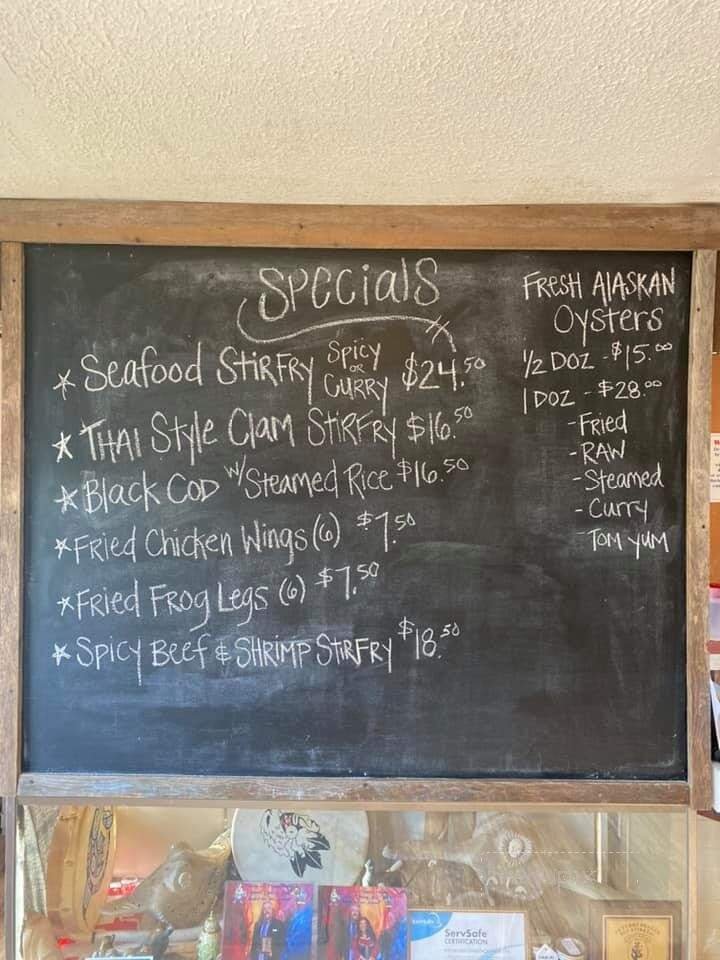 Specials
* Seafood StirFry Spicy or Curry $24.50
* Thai Style Clam StirFry $16.50
* Black Cod w/ Steamed Rice $16.50
* Fried Chicken Wings (6) $7.50
* Fried Frog Legs (6) $7.50
* Spicy Beef & Shrimp StirFry $18.50
Fresh Alaskan
Oysters
1/2 Doz - $15.00
1 Doz - $28.00
- Fried
- Raw
- Steamed
- Curry
- Tom Yum
ServSafe
CERTIFICATION